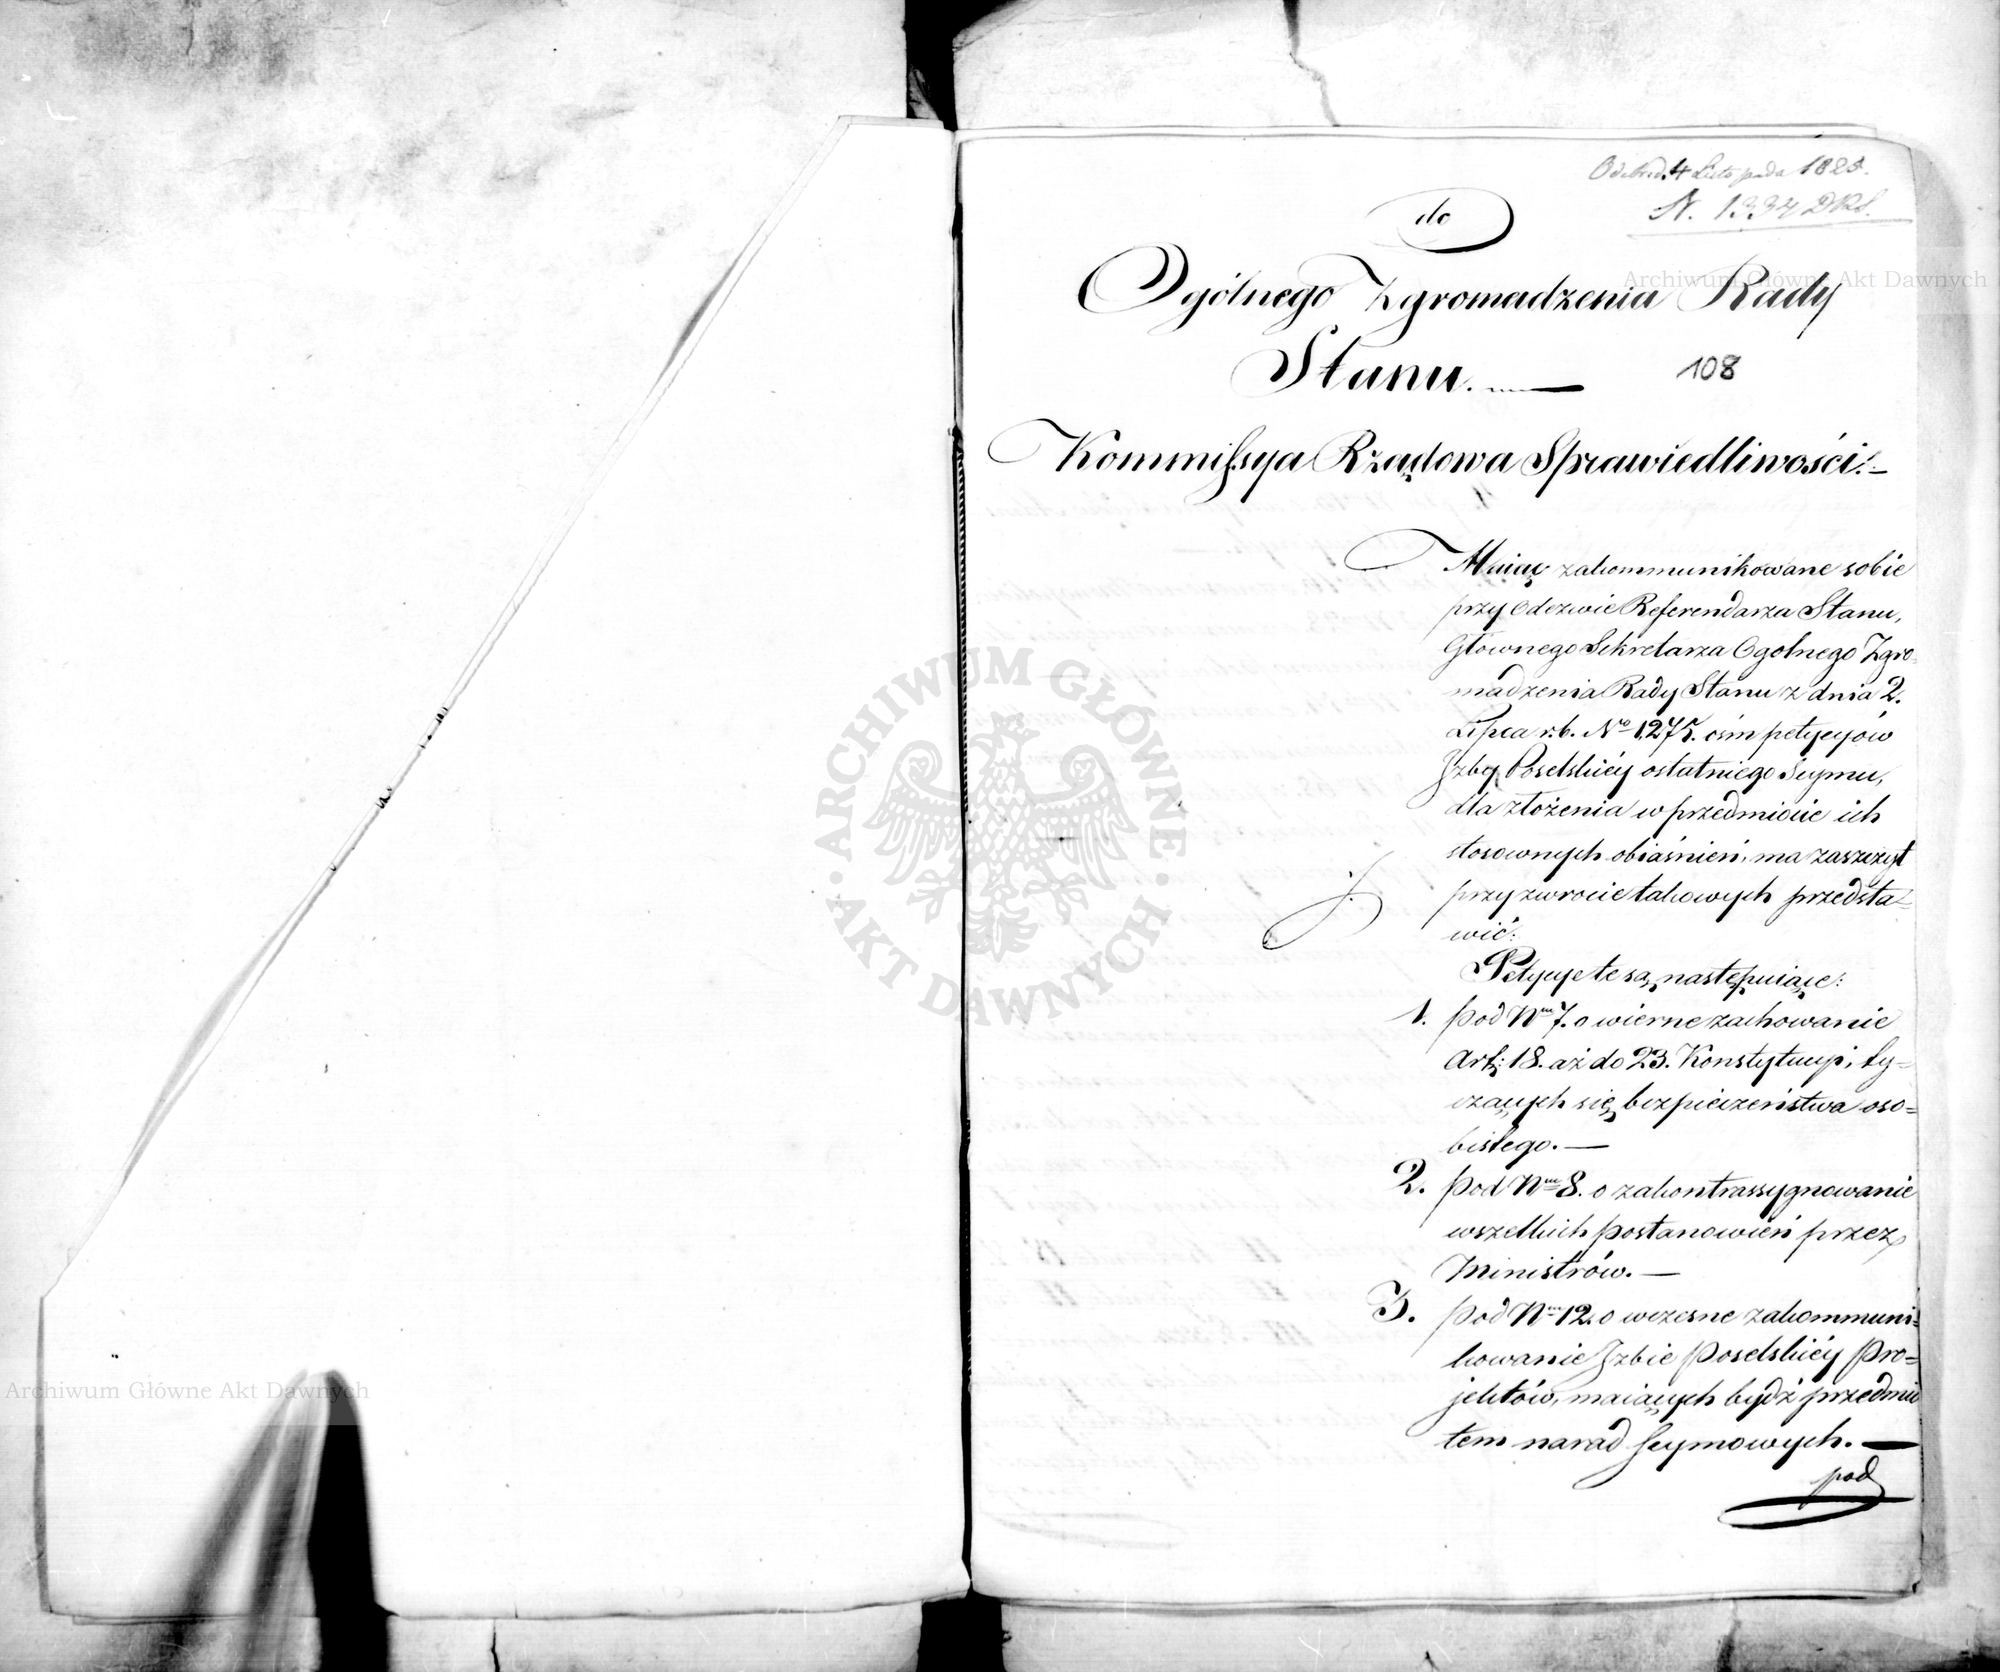 Odebrd. 4 Listopada 1825.
N. 1334 DRS.
do
Ogólnego Zgromadzenia Rady
Stanu.
108
Kommissya Rządowa Sprawiedliwości.
Maiąc zakommunikowane sobie
przy Odezwie Referendarza Stanu,
Głownego Sekretarza Ogolnego Zgro-
madzenia Rady Stanu z dnia 2.
Lipca r.b. No 1275. ośm petycyów
Jzby Poselskiéy ostatniego Seymu,
dla złożenia w przedmiocie ich
stosownych obiaśnień, ma zaszczyt
przy zwrocie takowych przedsta-
wić:
Petycye te są następuiące:
1. pod Nm 7. o wierne zachowanie
Art: 18. aż do 23. Konstytucyi, ty=
czących się bezpieczeństwa oso=
bistego. —
2. pod Nm 8. o zakontrassygnowanie
wszelkich postanowień przez
Ministrów. —
3. pod Nm 12. o wczesne zakommuni=
kowanie Jzbie Poselskiéy Pro=
jektów, maiących bydź przedmio
tem narad Seymowych. —
pod
ARCHIWUM GŁÓWNE
AKT DAWNYCH
Archiwum Główne Akt Dawnych
Archiwum Główne Akt Dawnych